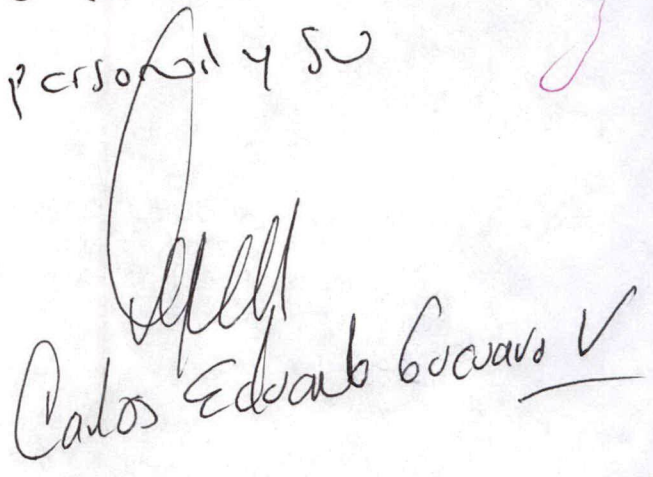 personal y su
Carlos Eduardo Guevara V